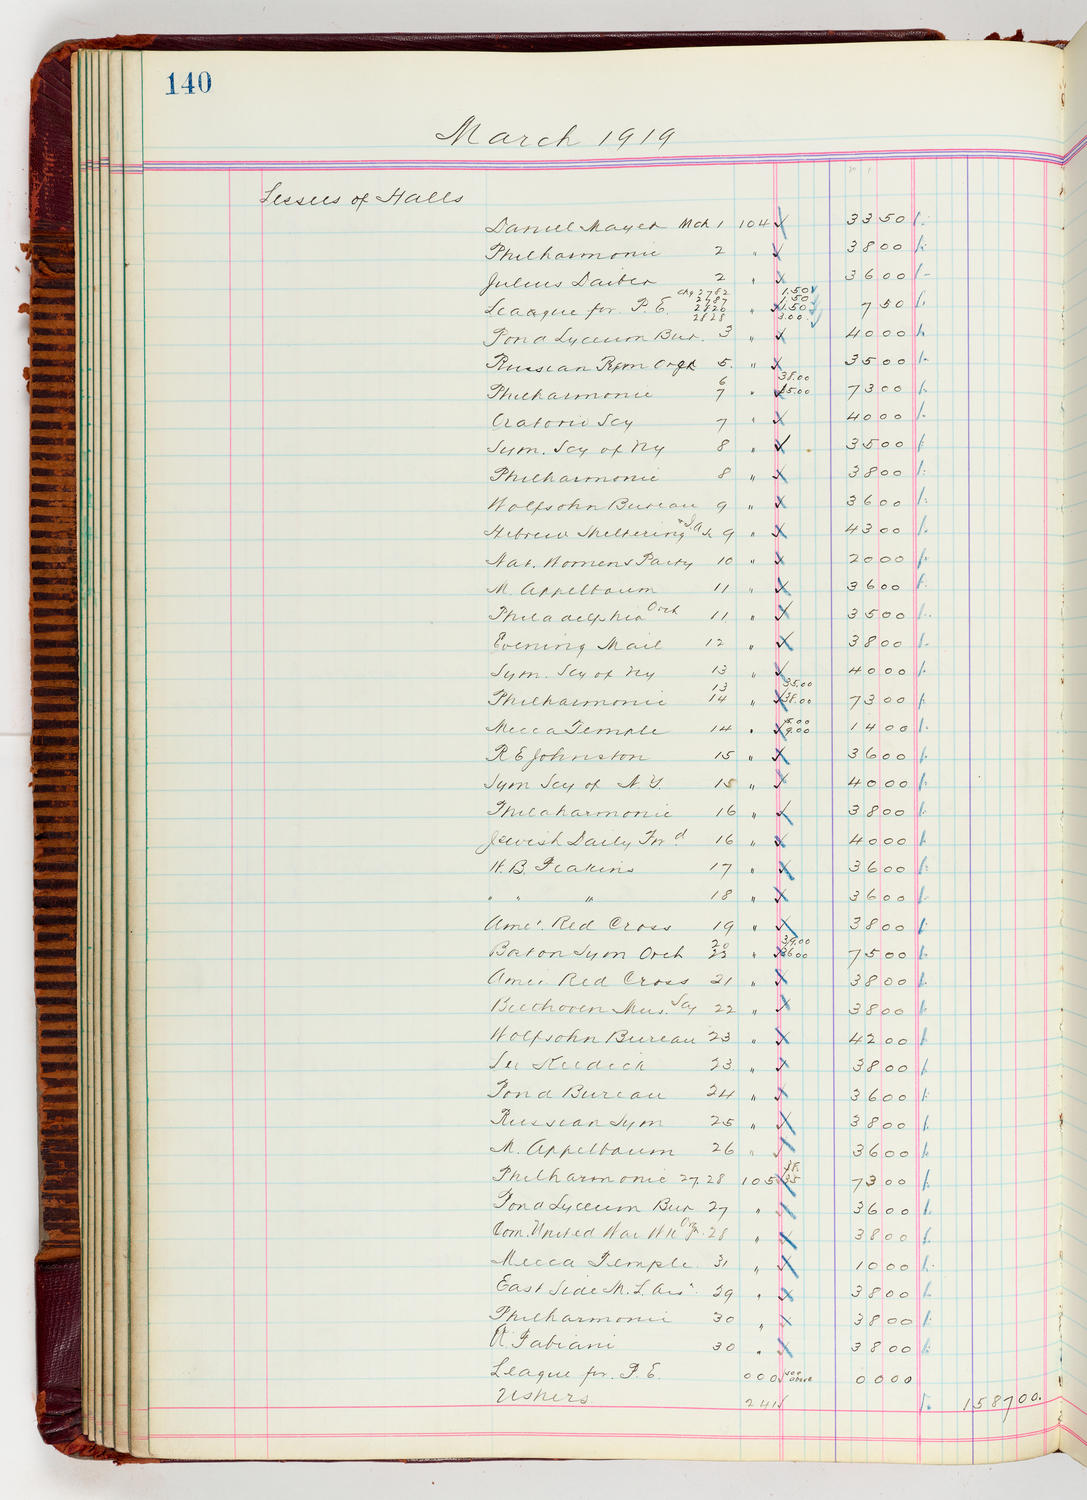 140
March 1919
Lessees of Halls
Daniel Mayer Mch 1 104 33 50
Philharmonic 2 " 38 00
Julius Daiber 2 " 36 00
League for P. E. Chg 2782 2787 2820 2828 " 1.50 1.50 1.50 3.00 7 50
Pond Lyceum Bur. 3 " 40 00
Russian Sym Orch 5. " 35 00
Philharmonic 6 7 " 38.00 35.00 73 00
Oratorio Scy 7 " 40 00
Sym. Scy of Ny 8 " 35 00
Philharmonic 8 " 38 00
Wolfsohn Bureau 9 " 36 00
Hebrew Sheltering 9 " 43 00
Nat. Womens Party 10 " 20 00
M. Appelbaum 11 " 36 00
Philadelphia Orch 11 " 35 00
Evening Mail 12 " 38 00
Sym. Scy of Ny 13 " 40 00
Philharmonic 13 14 " 35.00 38.00 73 00
Mecca Temple 14 " 5.00 9.00 14 00
R E Johnston 15 " 36 00
Sym Scy of N.Y. 15 " 40 00
Philaharmonic 16 " 38 00
Jewish Daily For'd 16 " 40 00
W. B. Feakins 17 " 36 00
" " " 18 " 36 00
Amer. Red Cross 19 " 38 00
Boston Sym Orch 20 22 " 39.00 36 00 75 00
Amer. Red Cross 21 " 38 00
Beethoven Mus. Scy 22 " 38 00
Wolfsohn Bureau 23 " 42 00
Lee Keedick 23 " 38 00
Pond Bureau 24 " 36 00
Russian Sym 25 " 38 00
M. Appelbaum 26 " 36 00
Philharmonic 27, 28 105 38. 35 73 00
Pond Lyceum Bur 27 " 36 00
Com. United War Wk 28 " 38 00
Mecca Temple 31 " 10 00
East Side M. L. Ass. 29 " 38 00
Philharmonic 30 " 38 00
A. Fabiani 30 " 38 00
League for. P. E. 000 see above 00 00
Ushers 241 1587 00.